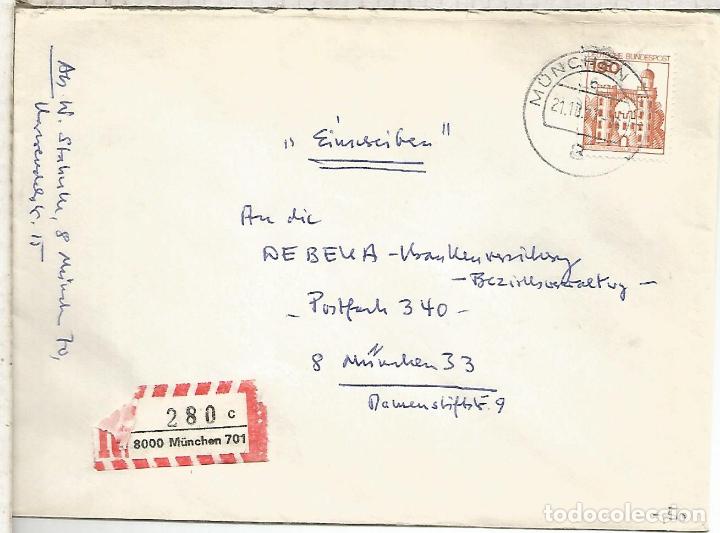 DEUTSCHE BUNDESPOST
MÜNCHEN
21.10.
a
„Einschreiben"
An die
DEBEKA - Krankenversicherung
- Bezirksverwaltung -
- Postfach 340 -
8 München 33
Damenstiftstr. 9
Abs W. Stahnke, 8 München 70,
str. 15
280 c
8000 München 701
todocoleccion.net